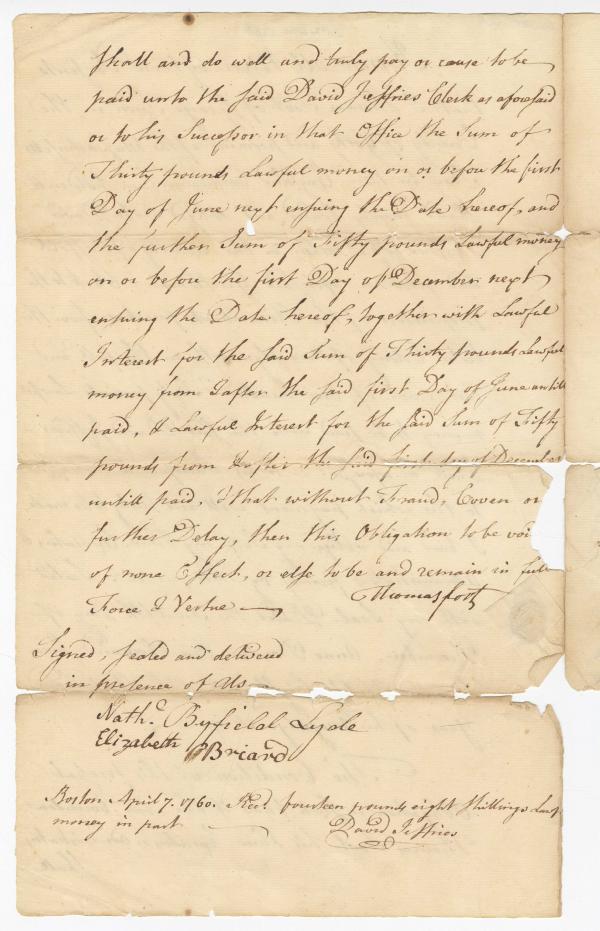 shall and do well and truly pay or cause to be
paid unto the said David Jeffries Clerk as aforesaid
or to his Successor in that Office the Sum of
Thirty pounds Lawful money on or before the first
Day of June next ensuing the Date hereof, and
the further Sum of Fifty pounds Lawful money
on or before the first Day of December next
ensuing the Date hereof, together with Lawful
Interest for the said Sum of Thirty pounds Lawful
money from & after the said first Day of June untill
paid, & Lawful Interest for the said Sum of Fifty
pounds from & after the said first day of December
untill paid, & that without Fraud, Coven or
further Delay, then this Obligation to be voi
of none Effect, or else to be and remain in full
Force & Vertue
Signed, sealed and delivered
in presence of Us
Nath.l Byfield Lyde
Elizabeth Briard
Boston April 7. 1760. Rec.d fourteen pounds eight shillings Lawf
money in part
David Jeffries